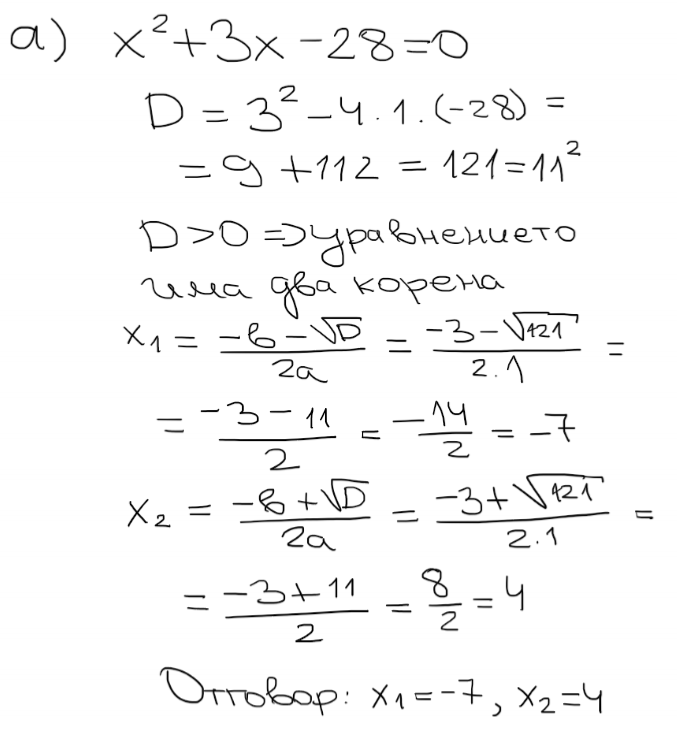 а) x²+3x-28=0
D = 3² - 4.1.(-28) =
= 9 + 112 = 121 = 11²
D>0 => уравнението
има два корена
x₁ = (-b-√D)/2a = (-3-√121)/2.1 =
= (-3-11)/2 = -14/2 = -7
x₂ = (-b+√D)/2a = (-3+√121)/2.1 =
= (-3+11)/2 = 8/2 = 4
Отговор: x₁=-7, x₂=4